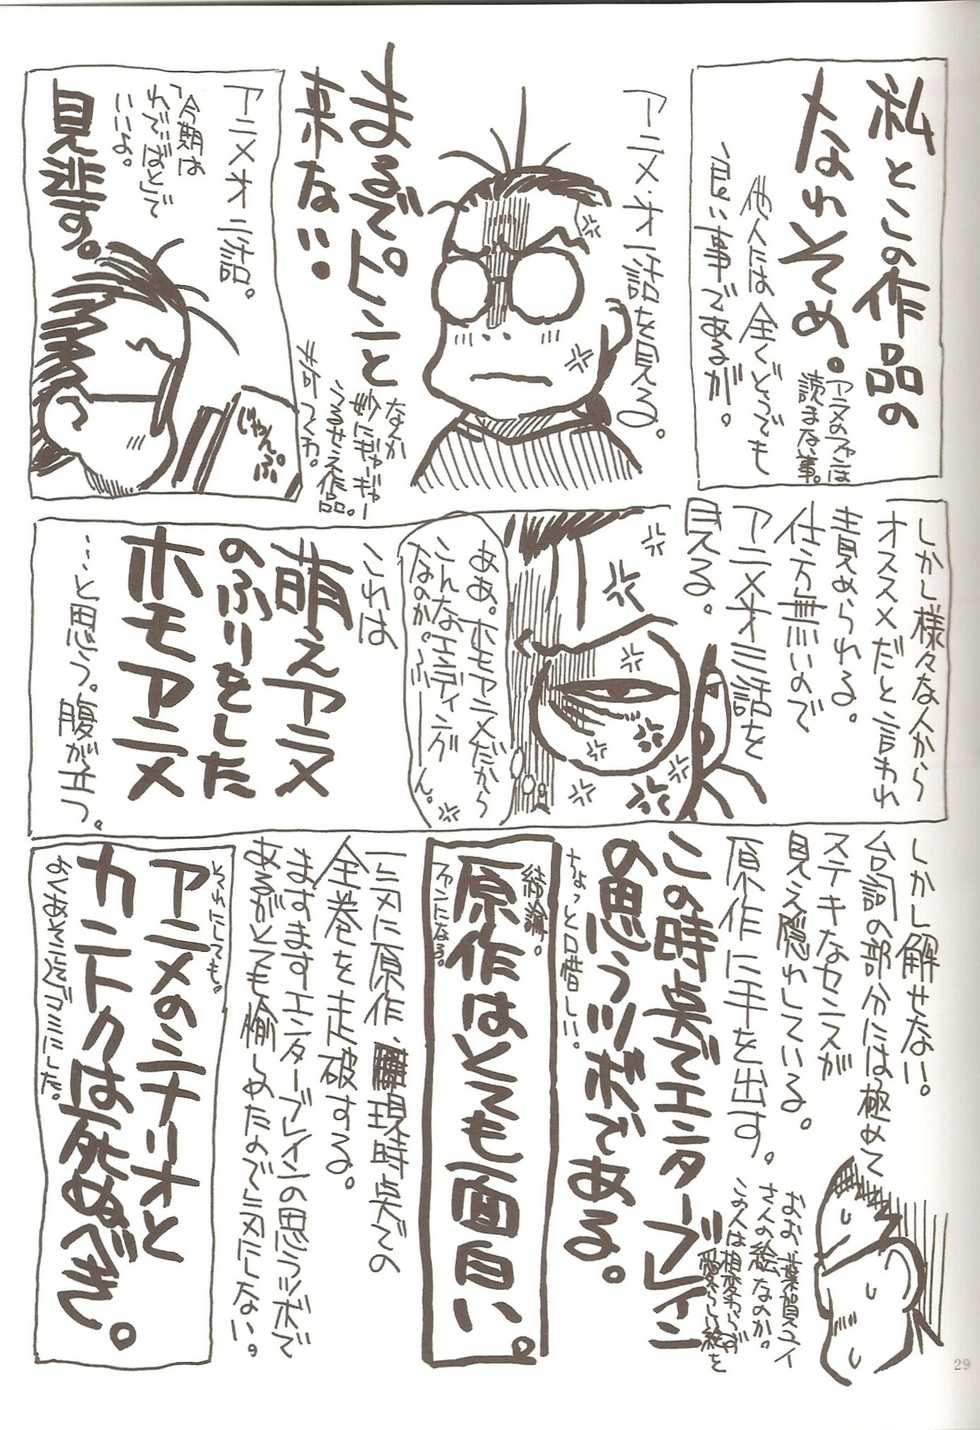 私とこの作品の
なれそめ。
アニメのファンは
読まな事。
他人には全くどうでも
良い事であるが。
アニメ・オ一話を見る。
まるでピンと
来ない…
なんか
妙にギャーギャー
うるせえ作品。
許てくわ。
アニメオ二話。
「今期は
わで゛ばとで
いいよ。
見逃す。
じゃんぷ
しかし様々な人から
オススメだと言われ
責められる。
仕方無いので
アニメオ三話を
見る。
ああ。ホモアニメだから
こんなエンディング
なのか。ふーん。
これは
萌えアニメ
のふりをした
ホモアニメ
…と思う。腹が立つ。
しかし解せない。
台詞の部分には極めて
ステキなセンスが
見え隠れしている。
おお、葉賀ユイ
さんの絵なのか。
この人は相変わらず
愛らしい絵を
原作に手を出す。
この時点でエンターブレイン
の思うツボである。
ちょっと口惜しい。
結論。
原作はとても面白い。
ファンになる。
一気に原作、現時点での
全巻を走破する。
ますますエンターブレインの思うツボで
あるがとても愉しめたので気にしない。
それにしても。
アニメのシナリオと
カントクは死ぬべき。
よくもあそこまでゴミにした。
29